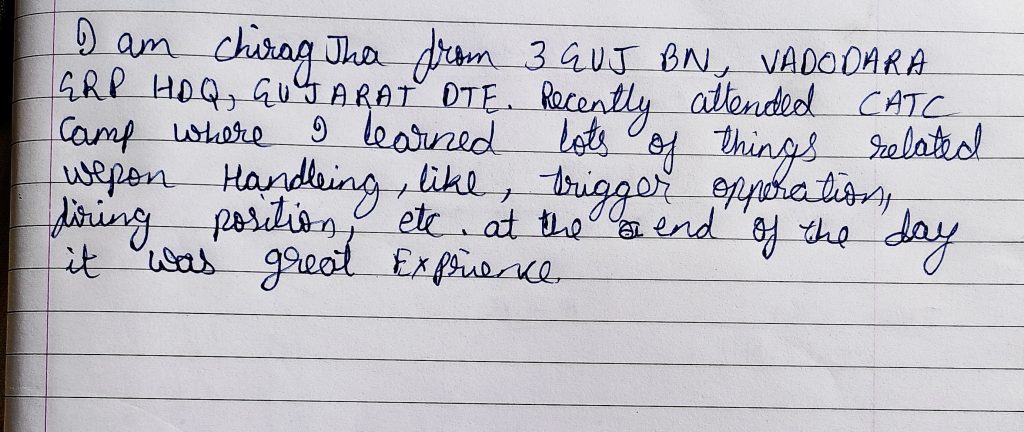 I am Chirag Jha from 3 GUJ BN, VADODARA
GRP HDQ, GUJARAT DTE. Recently attended CATC
Camp where I learned lots of things related
wepon Handleing, like, trigger opperation,
firing position, etc. at the end of the day
it was great Exprience